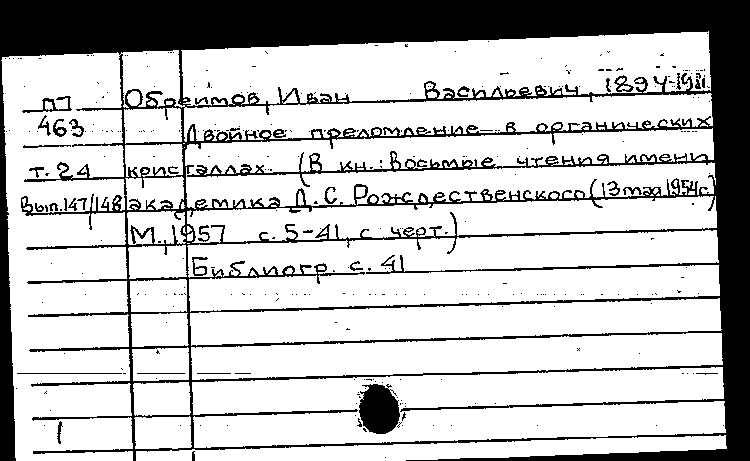 П7 Обреимов, Иван Васильевич, 1894-1981
463 Двойное преломление в органических
т. 24 кристаллах. (В кн.: Восьмые чтения имени
Вып. 147/148 академика Д. С. Рождественского (13 мая 1954 г.)
М., 1957 с. 5-41, с черт.)
Библиогр. с. 41
1